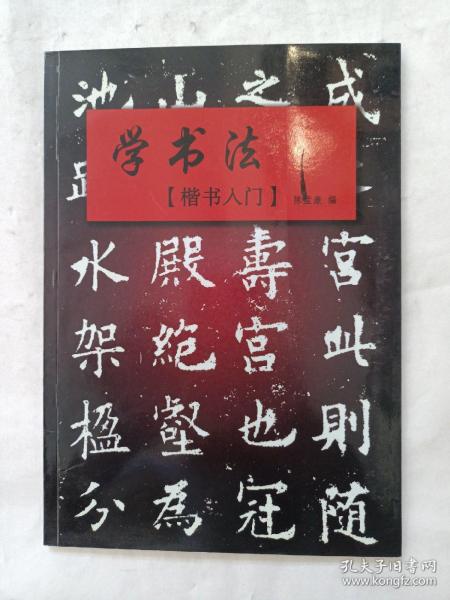 学书法
【楷书入门】
编
成
宮此則随
之
壽宮也冠
山
殿絕壑為
池
水架楹分
孔夫子旧书网
www.kongfz.com